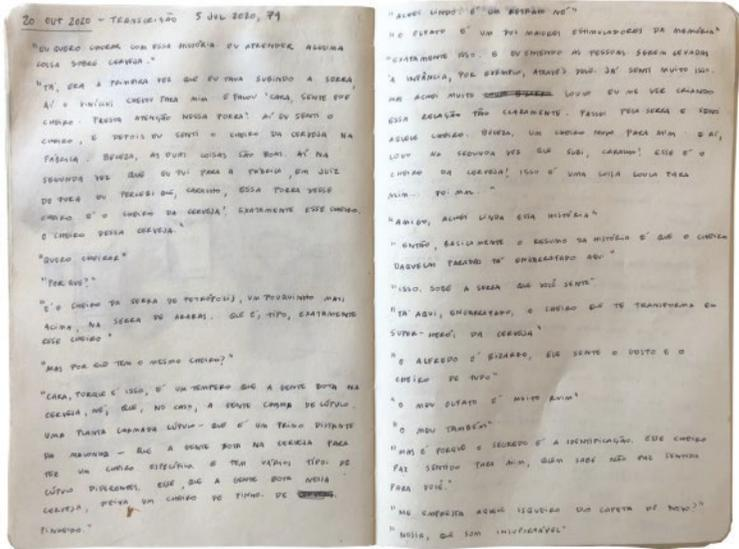 20 OUT 2020 - TRANSCRIÇÃO 5 JUL 2020, 71
"EU QUERO CHORAR COM ESSA HISTÓRIA. EU APRENDER ALGUMA
COISA SOBRE CERVEJA."
"TÁ, ERA A PRIMEIRA VEZ QUE EU TAVA SUBINDO A SERRA,
AÍ O VINÍCIUS CHEGOU PARA MIM E FALOU 'CARA, SENTE ESSE
CHEIRO. PRESTA ATENÇÃO NESSA PORRA!' AÍ EU SENTI O
CHEIRO, E DEPOIS EU SENTI O CHEIRO DA CERVEJA NA
FÁBRICA. BELEZA, AS DUAS COISAS SÃO BOAS. AÍ NA
SEGUNDA VEZ QUE EU FUI PARA A FÁBRICA, EM JUIZ
DE FORA EU PERCEBI QUE, CARALHO, ESSA PORRA DESSE
CHEIRO É O CHEIRO DA CERVEJA! EXATAMENTE ESSE CHEIRO.
O CHEIRO DESSA CERVEJA."
"QUERO CHEIRAR"
"POR QUE?"
"É O CHEIRO DA SERRA DE PETRÓPOLIS, UM POUQUINHO MAIS
ACIMA, NA SERRA DE ARARAS. QUE É, TIPO, EXATAMENTE
ESSE CHEIRO"
"MAS POR QUE TEM O MESMO CHEIRO?"
"CARA, PORQUE É ISSO, É UM TEMPERO QUE A GENTE BOTA NA
CERVEJA, NÉ, QUE, NO CASO, A GENTE CHAMA DE LÚPULO.
UMA PLANTA CHAMADA LÚPULO - QUE É UM PRIMO DISTANTE
DA MACONHA - QUE A GENTE BOTA NA CERVEJA PARA
TER UM CHEIRO ESPECÍFICO E TEM VÁRIOS TIPOS DE
LÚPULO DIFERENTES. ESSE, QUE A GENTE BOTA NESSA
CERVEJA, DEIXA UM CHEIRO DE PINHO. DE
PINHEIRO."
"ACHEI LINDO! É UM RETRATO NÉ"
"O OLFATO É UM DOS MAIORES ESTIMULADORES DA MEMÓRIA"
"EXATAMENTE ISSO. E EU ENTENDO AS PESSOAS SEREM LEVADAS
À INFÂNCIA, POR EXEMPLO, ATRAVÉS DISSO. JÁ SENTI MUITO ISSO.
MAS ACHEI MUITO LOUCO EU ME VER CRIANDO
ESSA RELAÇÃO TÃO CLARAMENTE. PASSEI PELA SERRA E SENTI
AQUELE CHEIRO. BELEZA, UM CHEIRO NOVO PARA MIM. E AÍ,
LOGO NA SEGUNDA VEZ QUE SUBI, CARALHO! ESSE É O
CHEIRO DA CERVEJA! ISSO É UMA COISA LOUCA PARA
MIM... FOI MAL..."
"AMIGO, ACHEI LINDA ESSA HISTÓRIA"
"ENTÃO, BASICAMENTE O RESUMO DA HISTÓRIA É QUE O CHEIRO
DAQUELAS PARADAS TÁ ENGARRAFADO AQUI"
"ISSO. SOBE A SERRA QUE VOCÊ SENTE"
"TÁ AQUI, ENGARRAFADO, O CHEIRO QUE TE TRANSFORMA EM
SUPER-HERÓI, DA CERVEJA"
"O ALFREDO É BIZARRO, ELE SENTE O GOSTO E O
CHEIRO DE TUDO"
"O MEU OLFATO É MUITO RUIM"
"O MEU TAMBÉM"
"MAS É PORQUE O SEGREDO É A IDENTIFICAÇÃO. ESSE CHEIRO
FAZ SENTIDO PARA MIM, QUEM SABE NÃO FAZ SENTIDO
PARA VOCÊ."
"ME EMPRESTA AQUELE ISQUEIRO DO CAPETA DE NOVO?"
"NOSSA, QUE SOM INSUPORTÁVEL"